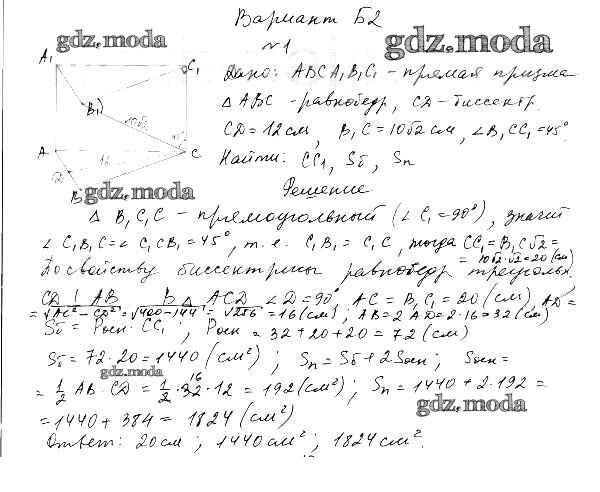 Вариант Б2
gdz.moda
gdz.moda
№1
A₁
C₁
B₁
10√2
45°
A
C
12
D
B
gdz.moda
Дано: ABCA₁B₁C₁ - прямая призма
△ ABC - равнобедр, CD - биссектр.
CD = 12 см, B₁C = 10√2 см, ∠B₁CC₁ = 45°
Найти: CC₁, Sб, Sп
Решение
△ B₁C₁C - прямоугольный (∠C₁ = 90°), значит
∠ C₁B₁C = ∠ C₁CB₁ = 45°, т.е. C₁B₁ = C₁C, тогда CC₁ = B₁C√2 =
= 10√2·√2 = 20 (см)
По свойству биссектрисы равнобедр треугольн.
CD ⊥ AB В △ ACD ∠D = 90° AC = B₁C₁ = 20 (см), AD =
= √AC² - CD² = √400-144 = √256 = 16 (см); AB = 2 AD = 2·16 = 32 (см)
Sб = Pосн · CC₁ ; Pосн = 32 + 20 + 20 = 72 (см)
Sб = 72·20 = 1440 (см²) ; Sп = Sб + 2Sосн ; Sосн =
gdz.moda
= 1/2 AB·CD = 1/2 · 32 · 12 = 192 (см²) ; Sп = 1440 + 2·192 =
16
= 1440 + 384 = 1824 (см²)
gdz.moda
Ответ: 20 см ; 1440 см² ; 1824 см².